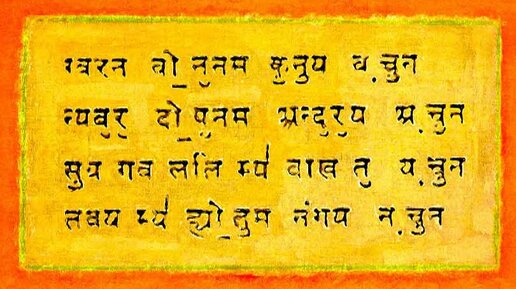 ग्वरन वो॒नुनम कुनुय व.चुन
न्यबुर॒ दो॒पुनम अन्दुरुय अ.चुन
सुय गव ललि म्य॑ वाख तु य.चुन
तवय म्य॑ ह्यो॒तुम नंगय न.चुन